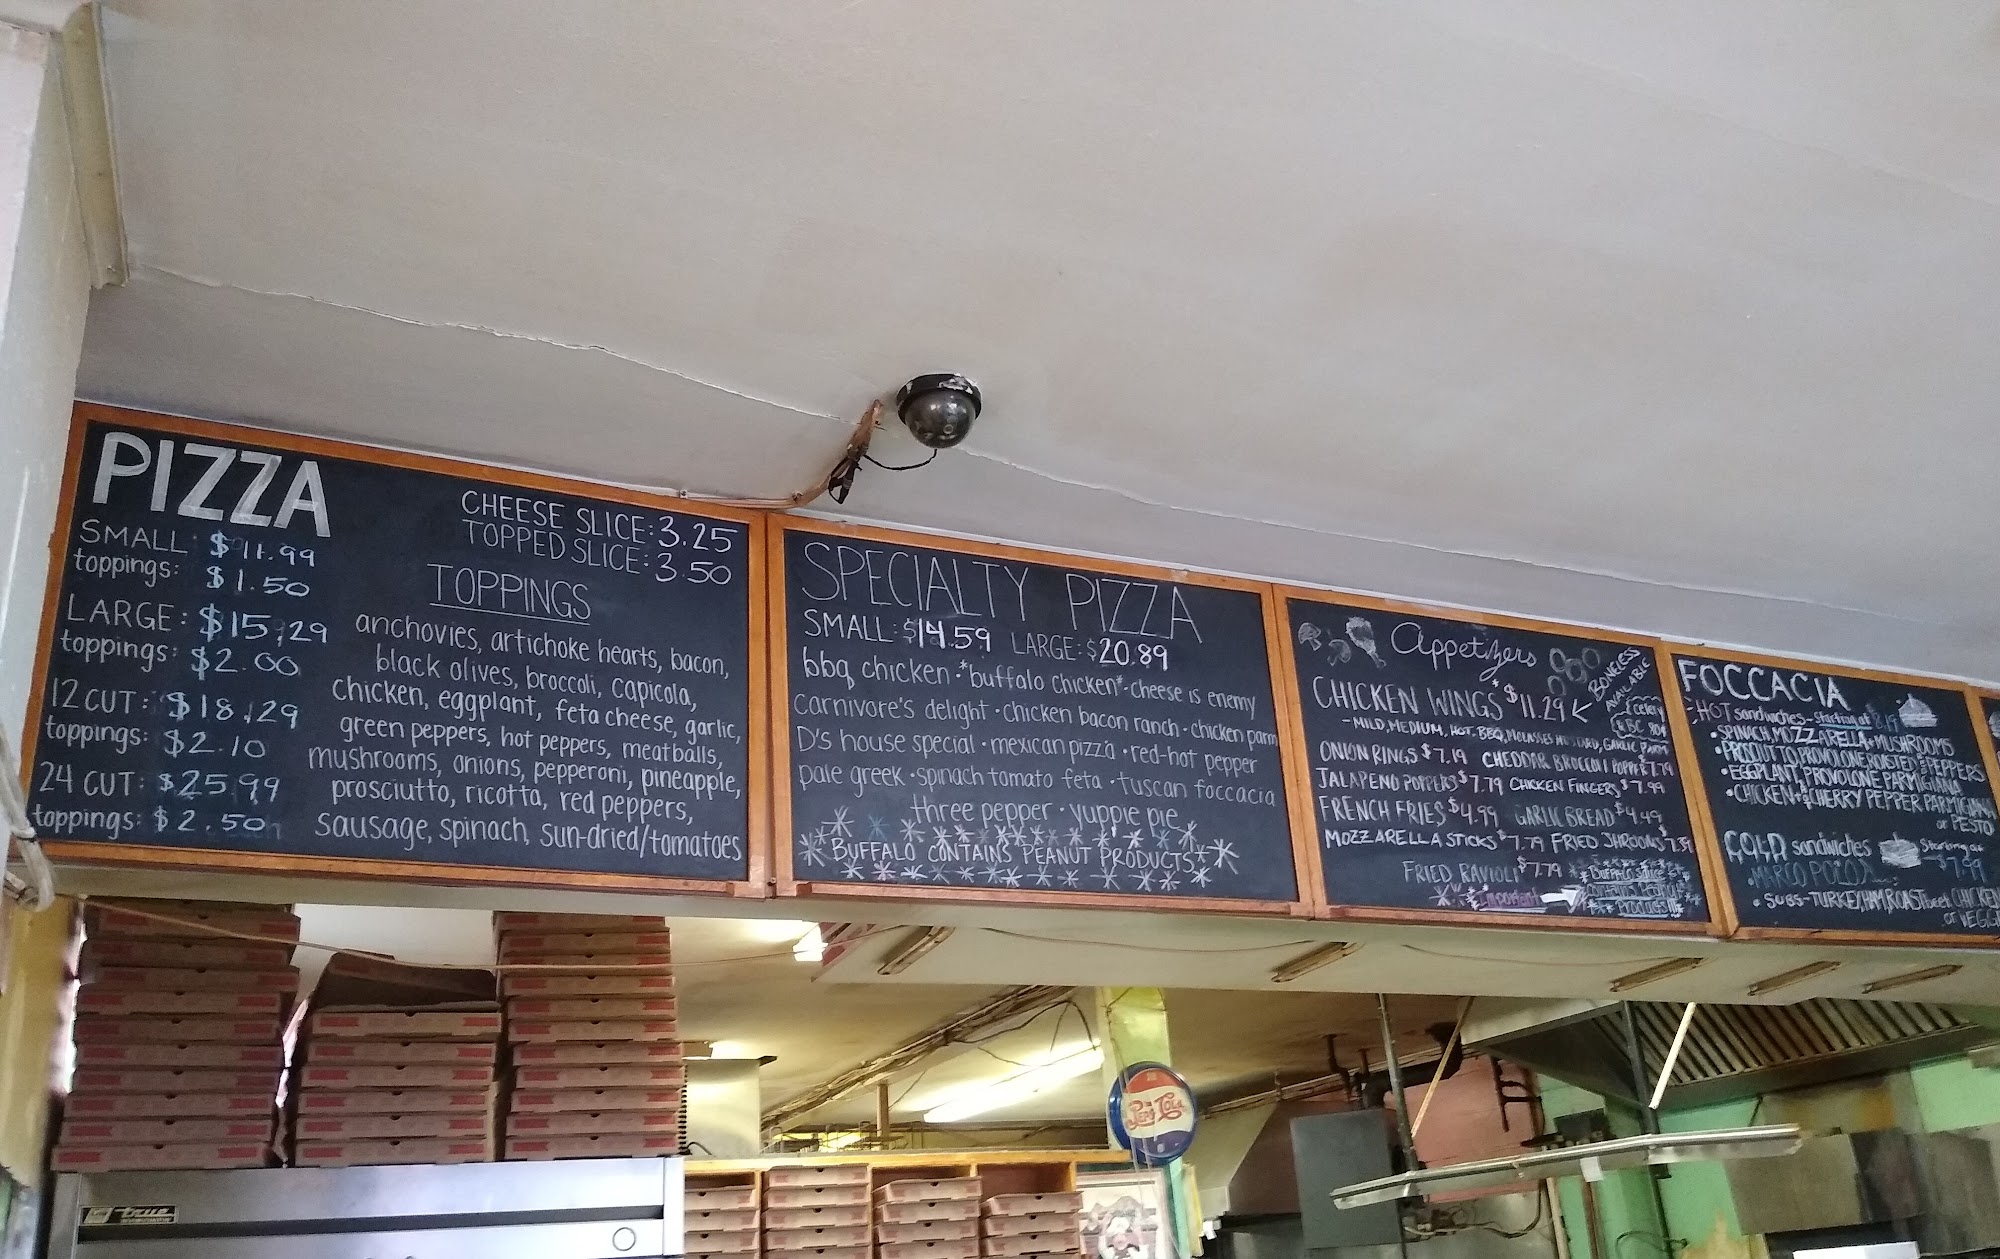 PIZZA
SMALL: $11.99
toppings: $1.50
LARGE: $15.29
toppings: $2.00
12 CUT: $18.29
toppings: $2.10
24 CUT: $25.99
toppings: $2.50
CHEESE SLICE: 3.25
TOPPED SLICE: 3.50
TOPPINGS
anchovies, artichoke hearts, bacon,
black olives, broccoli, capicola,
chicken, eggplant, feta cheese, garlic,
green peppers, hot peppers, meatballs,
mushrooms, onions, pepperoni, pineapple,
prosciutto, ricotta, red peppers,
sausage, spinach, sun-dried/tomatoes
SPECIALTY PIZZA
SMALL: $14.59 LARGE: $20.89
bbq chicken · *buffalo chicken* · cheese is enemy
carnivore's delight · chicken bacon ranch · chicken parm
D's house special · mexican pizza · red-hot pepper
pale greek · spinach tomato feta · tuscan foccacia
three pepper · yuppie pie
BUFFALO CONTAINS PEANUT PRODUCTS
Appetizers
CHICKEN WINGS $11.29
BONELESS
AVAILABLE
- MILD, MEDIUM, HOT, BBQ, MOLASSES MUSTARD, GARLIC PARM
ONION RINGS $7.19 CHEDDAR BROCCOLI POPPER $7.79
JALAPENO POPPERS $7.79 CHICKEN FINGERS $7.99
FRENCH FRIES $4.99 GARLIC BREAD $4.49
MOZZARELLA STICKS $7.79 FRIED SHROOMS
FRIED RAVIOLI $7.79
important
BUFFALO SAUCE
CONTAINS Peanut
Products!!!
FOCCACIA
- HOT sandwiches - starting at
• SPINACH, MOZZARELLA + MUSHROOMS
• PROSCIUTTO, PROVOLONE, ROASTED PEPPERS
• EGGPLANT, PROVOLONE PARMIGIANA
• CHICKEN + CHERRY PEPPER PARMIGIANA
or PESTO
COLD sandwiches starting at
$7.99
• MARCO POLO
• SUBS - TURKEY, HAM, ROAST beef, CHICKEN
or VEGGIE
true
Pepsi Cola